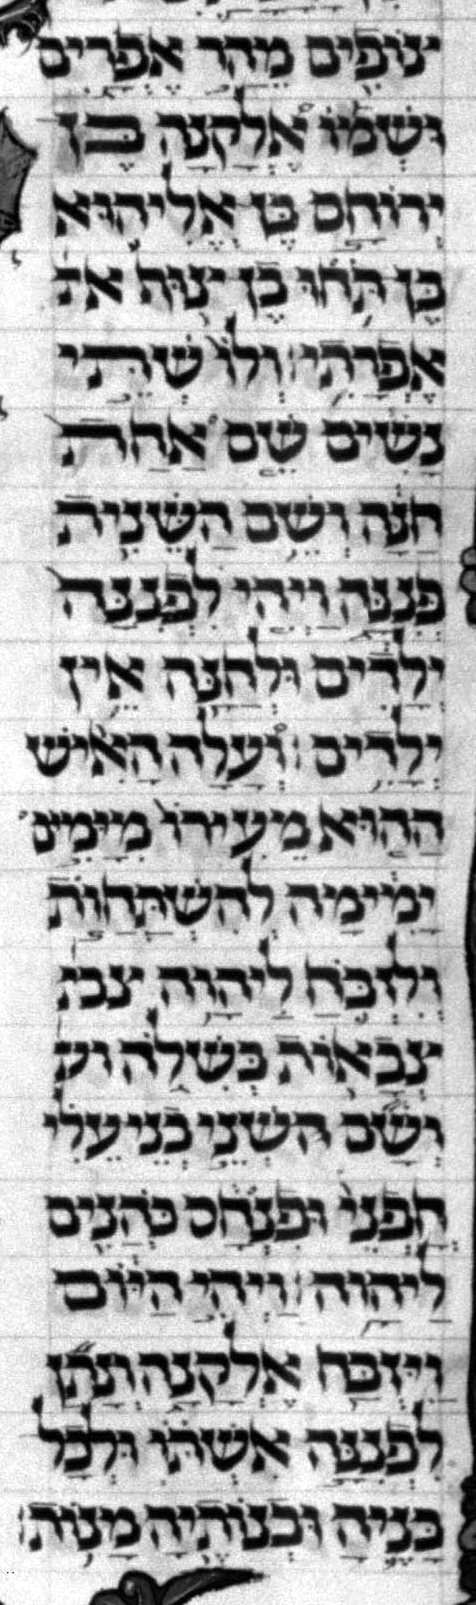 צוֹפִים מֵהַר אֶפְרָיִם
וּשְׁמוֹ אֶלְקָנָה בֶּן
יְרוֹחָם בֶּן אֱלִיהוּא
בֶּן תֹּחוּ בֶן צוּף
אֶפְרָתִי׃ וְלוֹ שְׁתֵּי
נָשִׁים שֵׁם אַחַת
חַנָּה וְשֵׁם הַשֵּׁנִית
פְּנִנָּה וַיְהִי לִפְנִנָּה
יְלָדִים וּלְחַנָּה אֵין
יְלָדִים׃ וְעָלָה הָאִישׁ
הַהוּא מֵעִירוֹ מִיָּמִים
יָמִימָה לְהִשְׁתַּחֲוֹת
וְלִזְבֹּחַ לַיהוָה
צְבָאוֹת בְּשִׁלֹה
וְשָׁם הַשְׁנֵי בְנֵי עֵלִי
חָפְנִי וּפִנְחָס כֹּהֲנִים
לַיהוָה׃ וַיְהִי הַיּוֹם
וַיִּזְבַּח אֶלְקָנָה וְנָתַן
לִפְנִנָּה אִשְׁתּוֹ וּלְכָל
בָּנֶיהָ וּבְנוֹתֶיהָ מָנוֹת׃